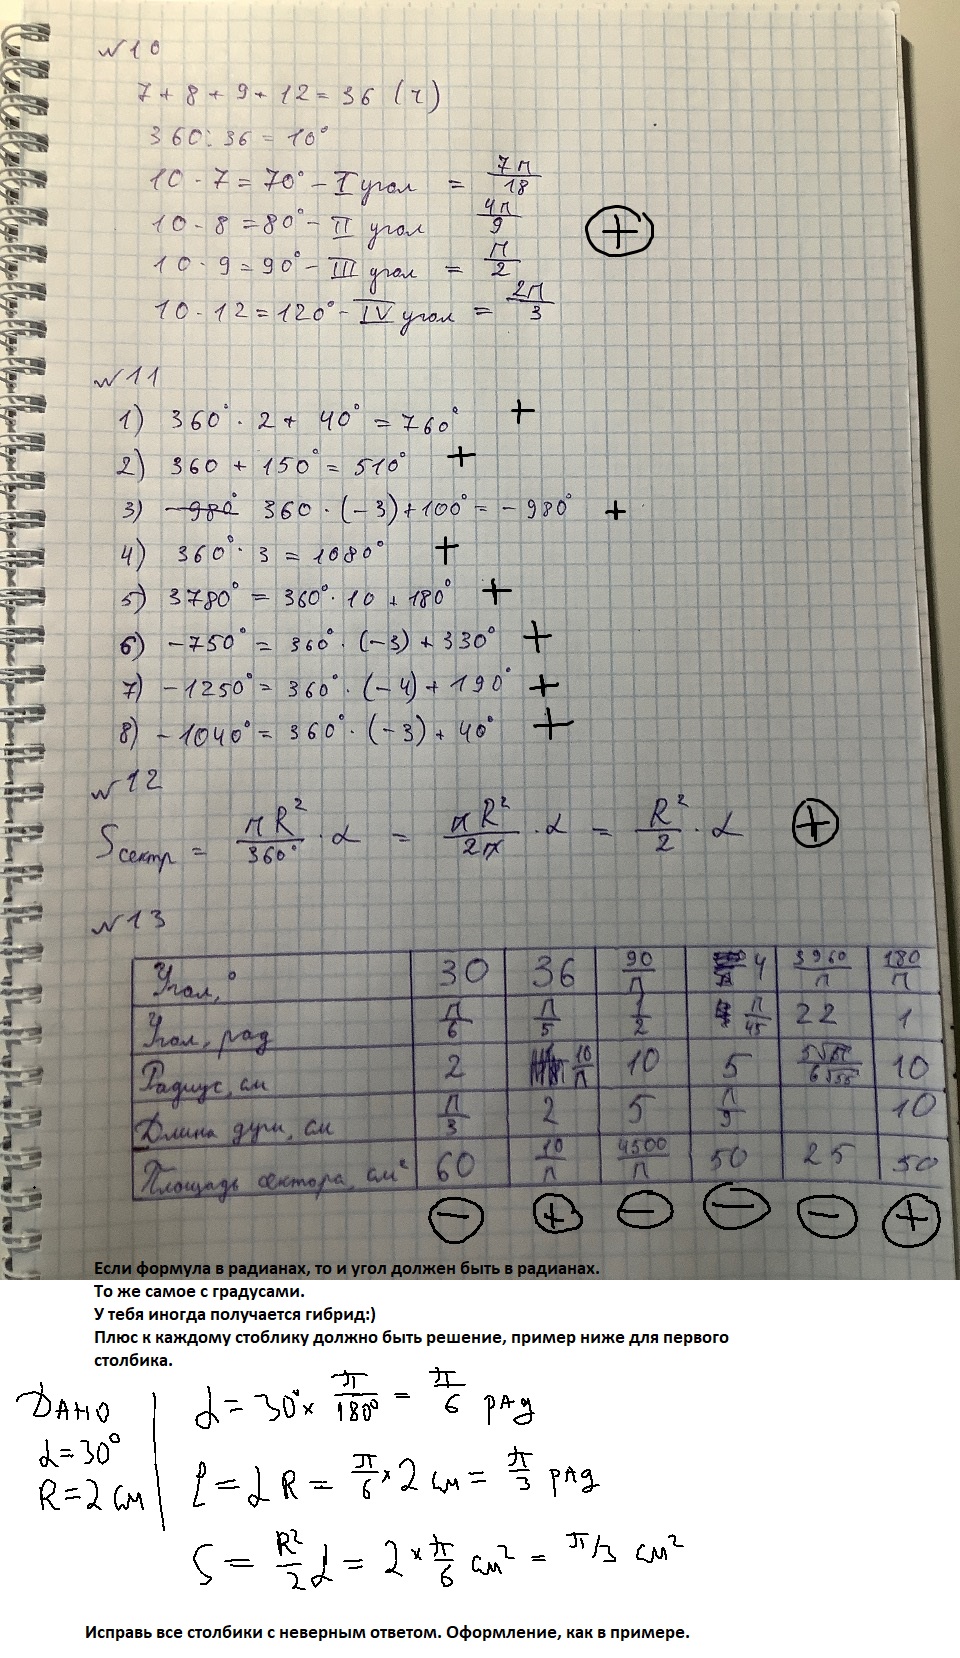 №10
7 + 8 + 9 + 12 = 36 (ч)
360 : 36 = 10°
10 · 7 = 70° – I угол = 7π/18
10 · 8 = 80° – II угол 4π/9
10 · 9 = 90° – III угол = π/2
10 · 12 = 120° – IV угол = 2π/3
+
№11
1) 360° · 2 + 40° = 760° +
2) 360 + 150° = 510° +
3) -980° 360 · (-3) + 100° = -980° +
4) 360° · 3 = 1080° +
5) 3780° = 360° · 10 + 180° +
6) -750° = 360° · (-3) + 330° +
7) -1250° = 360° · (-4) + 190° +
8) -1040° = 360° · (-3) + 40° +
№12
Sсектр = πR²/360° · α = πR²/2π · α = R²/2 · α +
№13
Угол, ° 30 36 90/π 4 3960/π 180/π
Угол, рад π/6 π/5 1/2 π/45 22 1
Радиус, см 2 10/π 10 5 10
Длина дуги, см π/3 2 5 π/9 10
Площадь сектора, см² 60 10/π 4500/π 50 25 50
− + − − − +
Если формула в радианах, то и угол должен быть в радианах.
То же самое с градусами.
У тебя иногда получается гибрид:)
Плюс к каждому стоблику должно быть решение, пример ниже для первого
столбика.
Дано α = 30° × π/180° = π/6 рад
α = 30°
R = 2 см ℓ = αR = π/6 × 2 см = π/3 рад
S = R²/2 α = 2 × π/6 см² = π/3 см²
Исправь все столбики с неверным ответом. Оформление, как в примере.